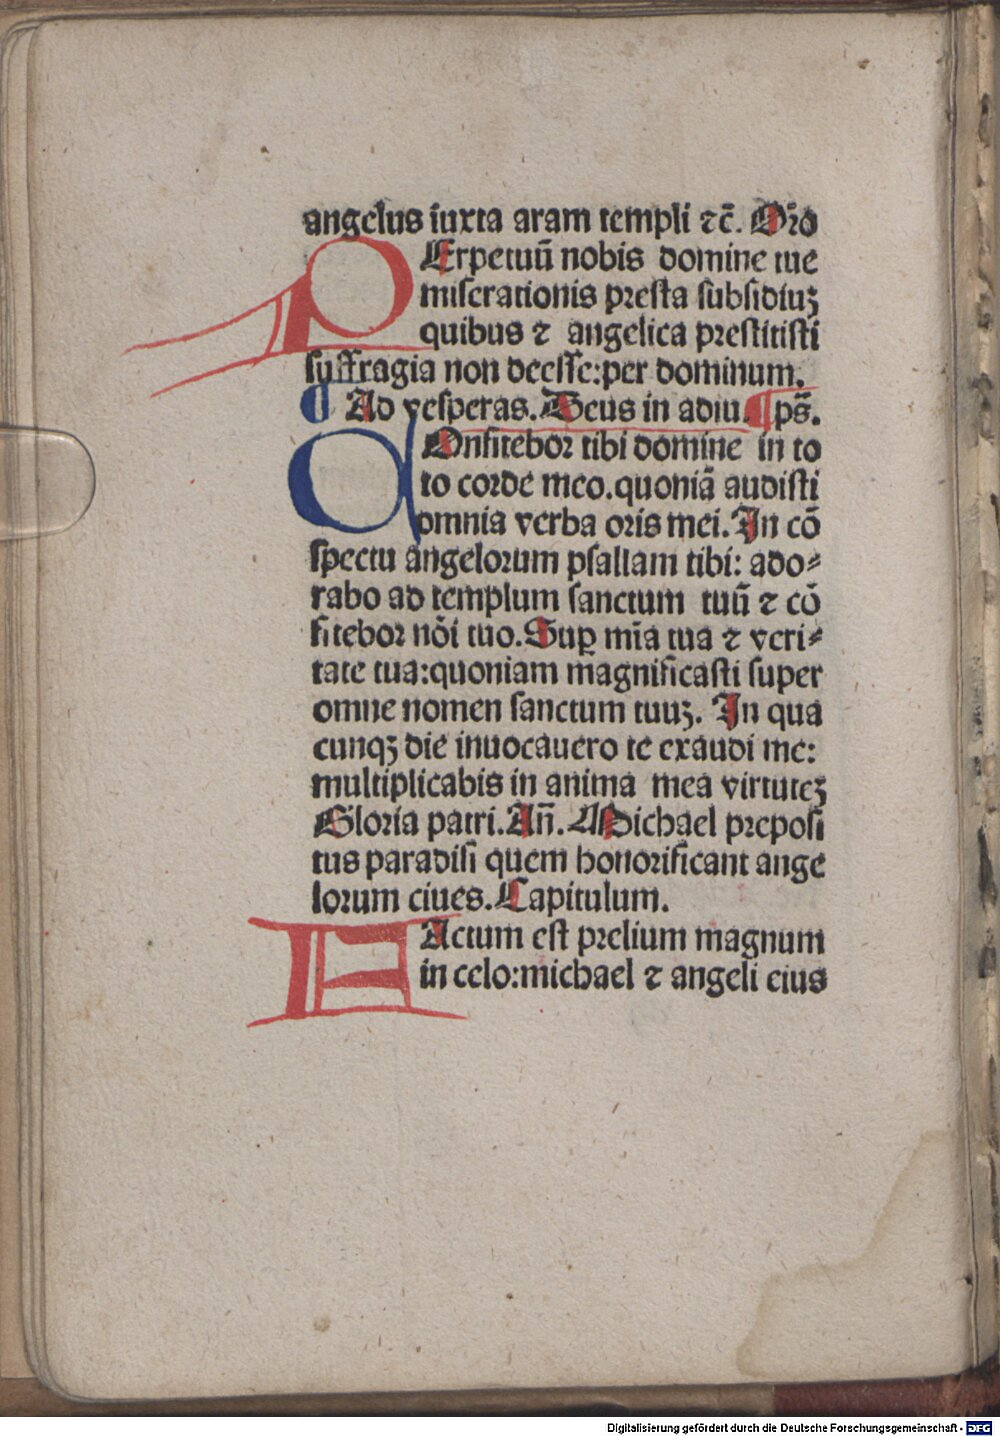 angelus iuxta aram templi ⁊c̄. Or̄o
PErpetuū nobis domine tue
miserationis presta subsidiuꝫ
quibus ⁊ angelica prestitisti
suffragia non deesse:per dominum.
¶ Ad vesperas. Deus in adiu. ¶ ps̄.
COnfitebor tibi domine in to
to corde meo.quoniā audisti
omnia verba oris mei. In cō
spectu angelorum psallam tibi: ado⸗
rabo ad templum sanctum tuū ⁊ cō
fitebor nōi tuo. Suꝑ mīa tua ⁊ veri⸗
tate tua:quoniam magnificasti super
omne nomen sanctum tuuꝫ. In qua
cunqꝫ die inuocauero te exaudi me:
multiplicabis in anima mea virtuteꝫ
Gloria patri. An̄. Michael preposi
tus paradisi quem honorificant ange
lorum ciues. Capitulum.
FActum est prelium magnum
in celo:michael ⁊ angeli eius
Digitalisierung gefördert durch die Deutsche Forschungsgemeinschaft - DFG